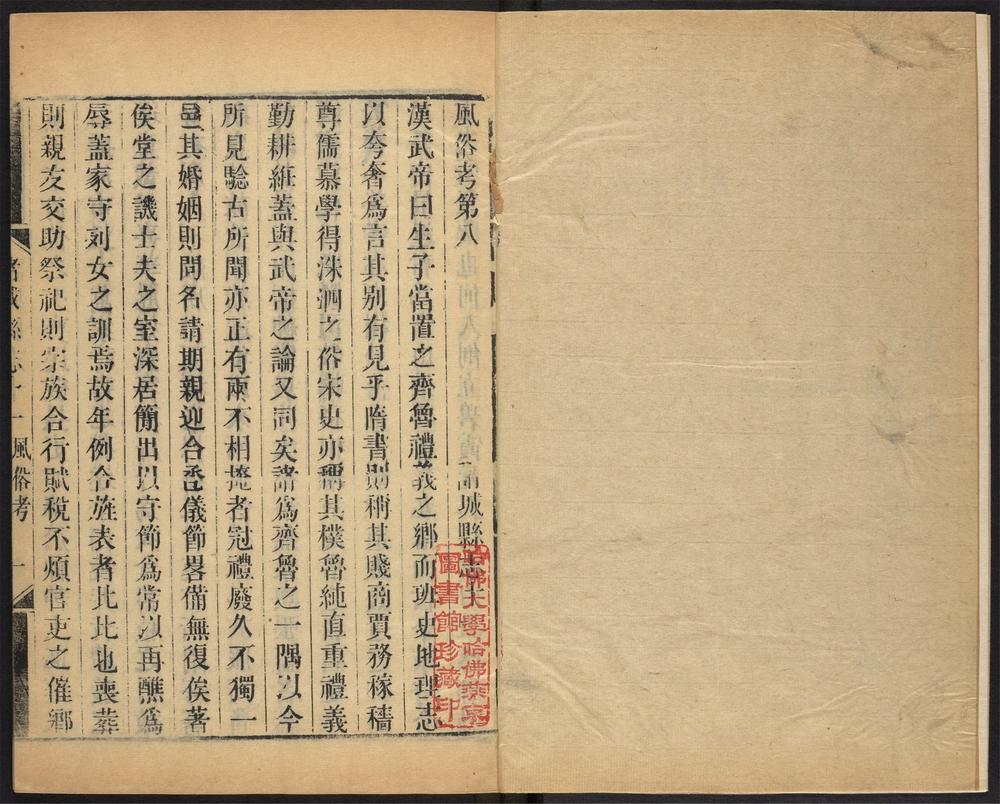 風俗考第八 諸城縣志十一
漢武帝曰生子當置之齊魯禮義之鄉而班史地理志
以夸奢爲言其别有見乎隋書則稱其賤商賈務稼穡
尊儒慕學得洙泗之俗宋史亦稱其樸魯純直重禮義
勤耕紝蓋與武帝之論又同矣諸爲齊魯之一隅以今
所見驗古所聞亦正有兩不相掩者冠禮廢久不獨一
邑其婚姻則問名請期親迎合巹儀節畧備無復俟著
俟堂之譏士夫之室深居簡出以守節爲常以再醮爲
辱蓋家守列女之訓焉故年例合旌表者比比也喪葬
則親友交助祭祀則宗族合行賦稅不煩官吏之催鄉
諸城縣志十一 風俗考 一
哈佛大學哈佛燕京
圖書館珍藏印